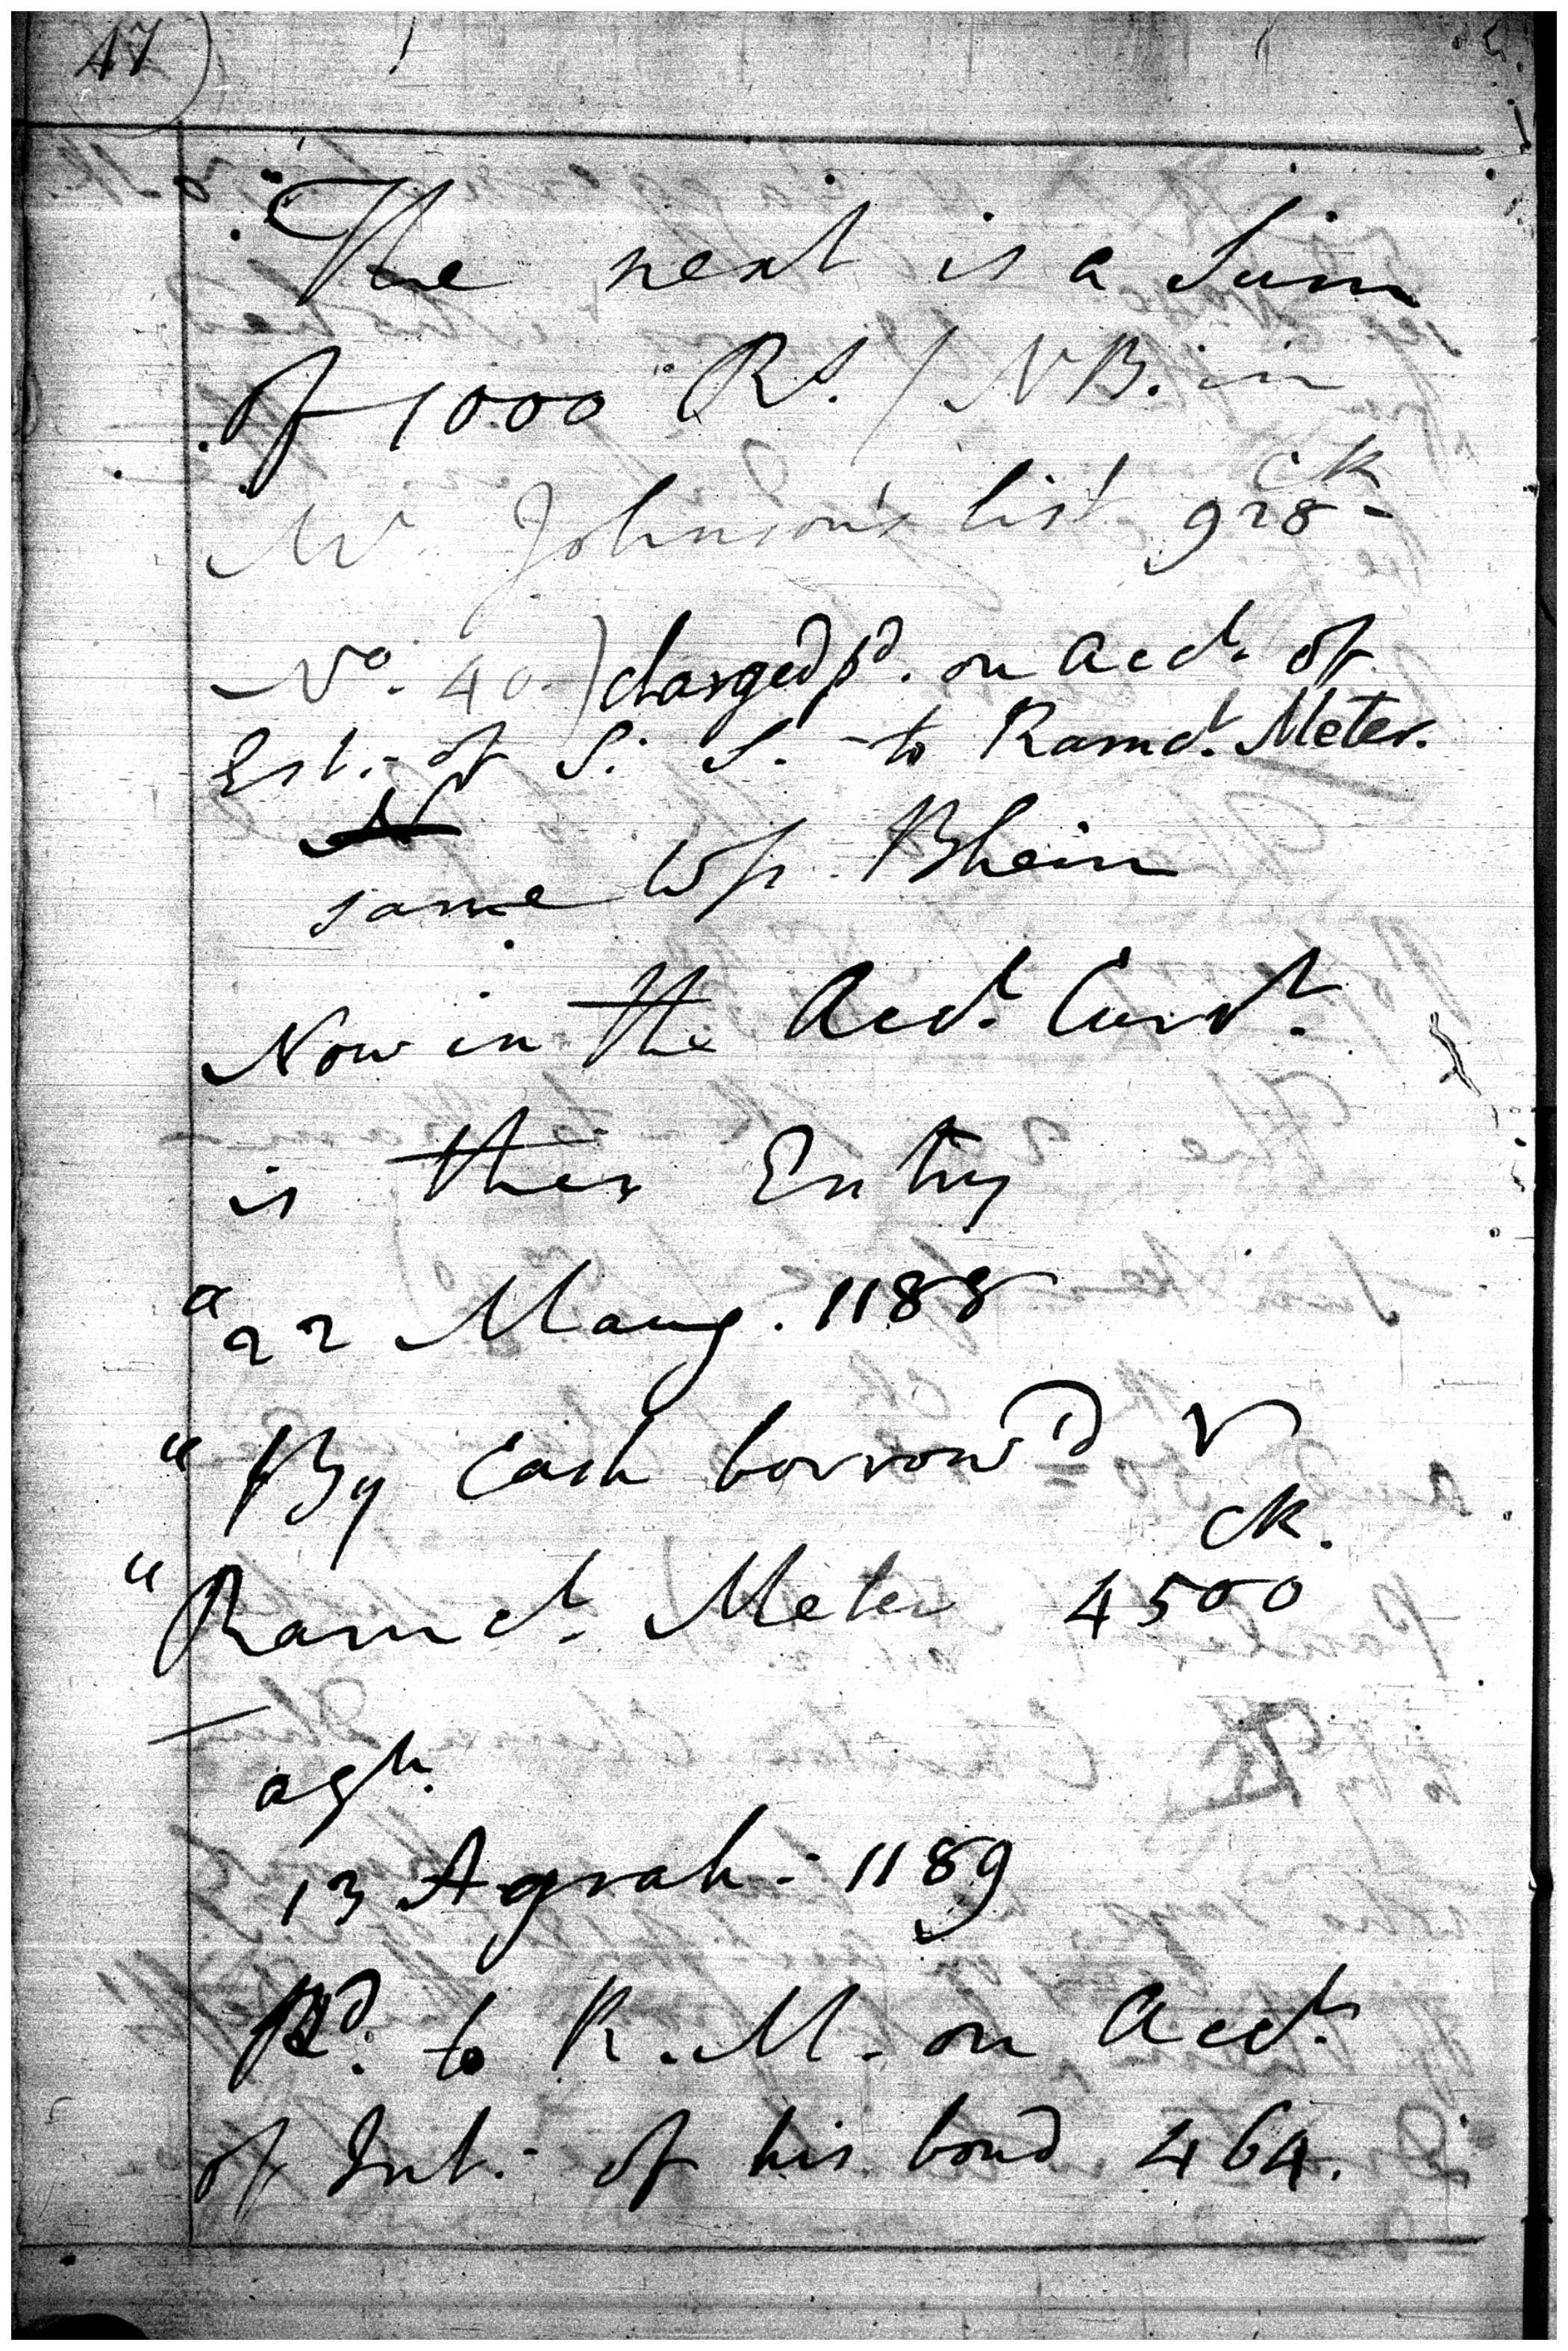 47
The next is a Sum
of 1000 Rs. / NB. in
Mr Johnson's list 928 -
CK
No. 40.) charged pd. on Acct. of
Est. of S. S. - to Ramct. Meter.
same Wp. Bhein
Now in the Acct. Currt.
is this Entry
" 22 Maug. 1188
" By Cash borrow'd
CK.
" Ramct. Meter 4500
agh.
13 Agrah - 1189
Pd. to R. M. on Acct.
of Int. - of his bond 464.